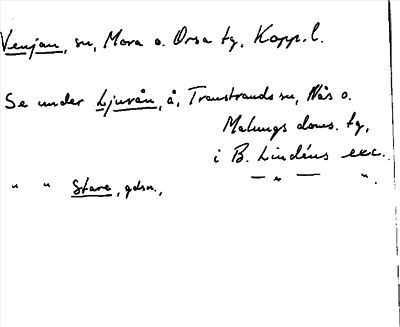 Venjan, sn, Mora o. Orsa tg, Kopp. l.
Se under Ljurån, å, Transtrands sn, Nås o.
Malungs doms. tg,
i B. Lindéns exc.
" " Stare, gdsn., — " — ".